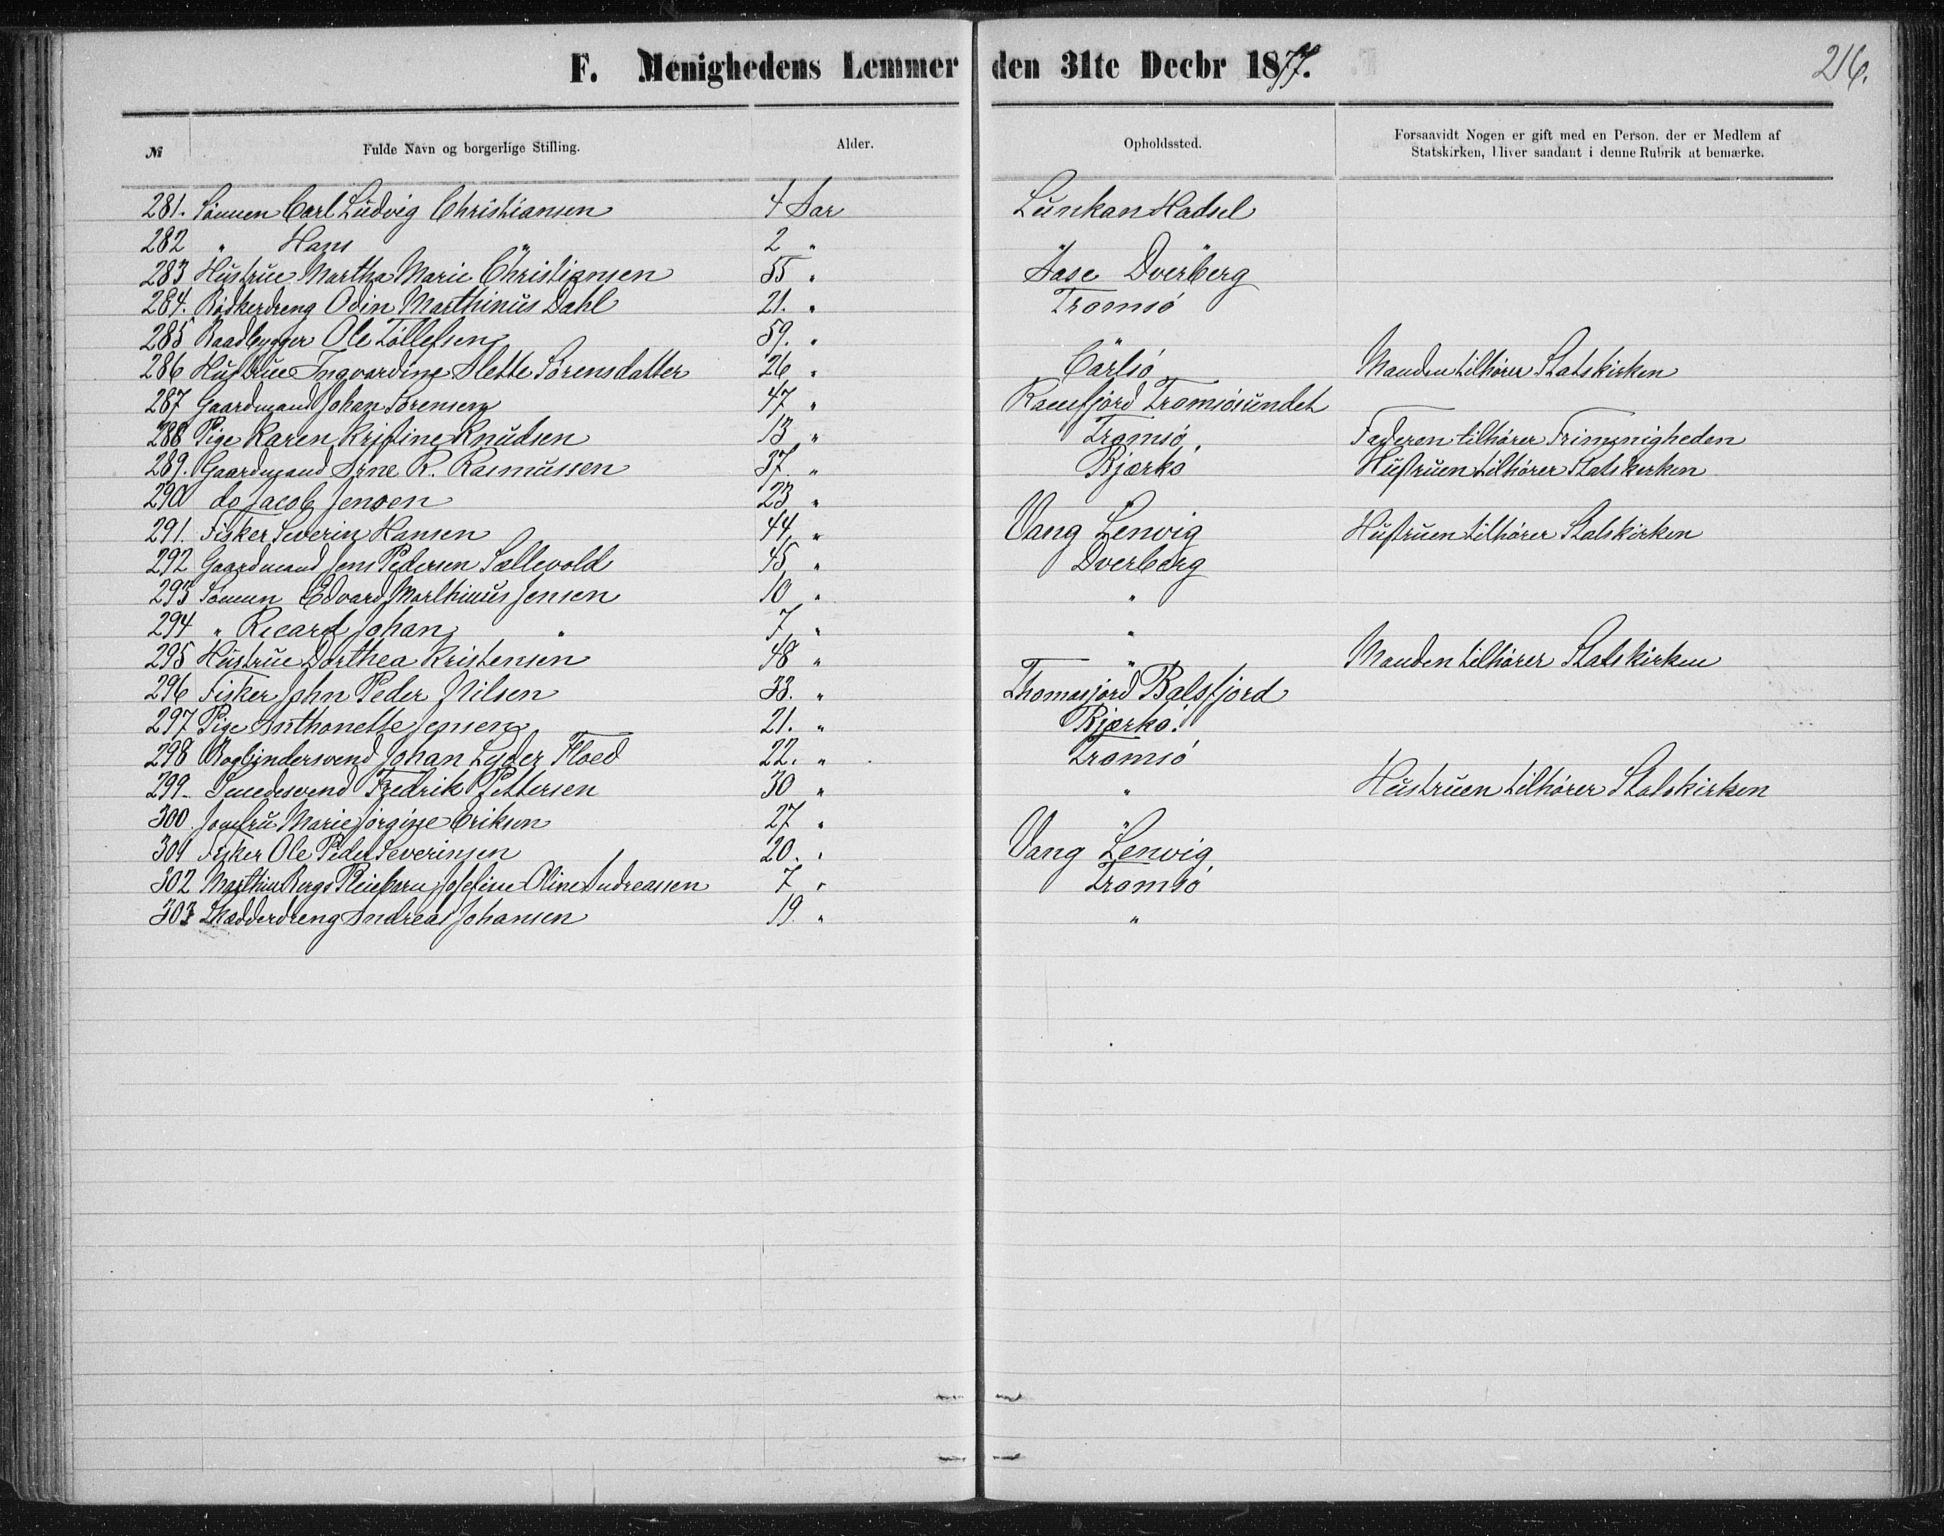 216.
F. Menighedens Lemmer den 31te Decbr 1877.
№ Fulde Navn og borgerlige Stilling. Alder. Opholdssted. Forsaavidt Nogen er gift med en Person, der er Medlem af Statskirken, bliver saadant i denne Rubrik at bemærke.
281. Sönnen Carl Ludvig Christiansen 4 Aar Lunkan Hadsel
282 " Hans " 2 " " "
283 Hustrue Martha Marie Christiansen 55 " Aase Dverberg
284. Bødkerdreng Odin Marthinus Dahl 21. " Tromsö
285 Baadbygger Ole Tollefsen 59. " "
286 Hustrue Ingvardine Alette Sörensdatter 26 " Carlsö Manden tilhører Statskirken
287 Gaardmand Johan Sörensen 47 " Ramfjord Tromsösundet
288 Pige Karen Kristine Knudsen 13 " Tromsö. Faderen tilhører Frimenigheden
289. Gaardmand Arne R. Rasmussen 37. " Bjærkö Hustruen tilhører Statskirken
290 do Jacob Jensen 23 " "
291. Fisker Severin Hansen 44 " Vang Lenvig Hustruen tilhører Statskirken
292 Gaardmand Jens Pedersen Sellevold 45 " Dverberg
293 Sönnen Edvard Marthinus Jensen 10 " "
294 " Ricard Johan " 7 " "
295 Hustrue Dorthea Kristensen 48 " " Manden tilhører Statskirken
296 Fisker John Peder Nilsen 33. " Thomasjord Balsfjord
297 Pige Anthonette Jensen 21. " Bjærkö.
298 Bogbindersvend Johan Lyder Floed 22. " Tromsö
299. Smedesvend Fredrik Pettersen 30 " " Hustruen tilhører Statskirken
300. Jomfru Marie Jörgine Eriksen 27 " "
301 Fisker Ole Peder Severinsen 20. " Vang Lenvig
302 Marthin Bergs Pleiebarn Josefine Oline Andreassen 7 " Tromsö
303 Skædderdreng Andreas Johansen 19. " "